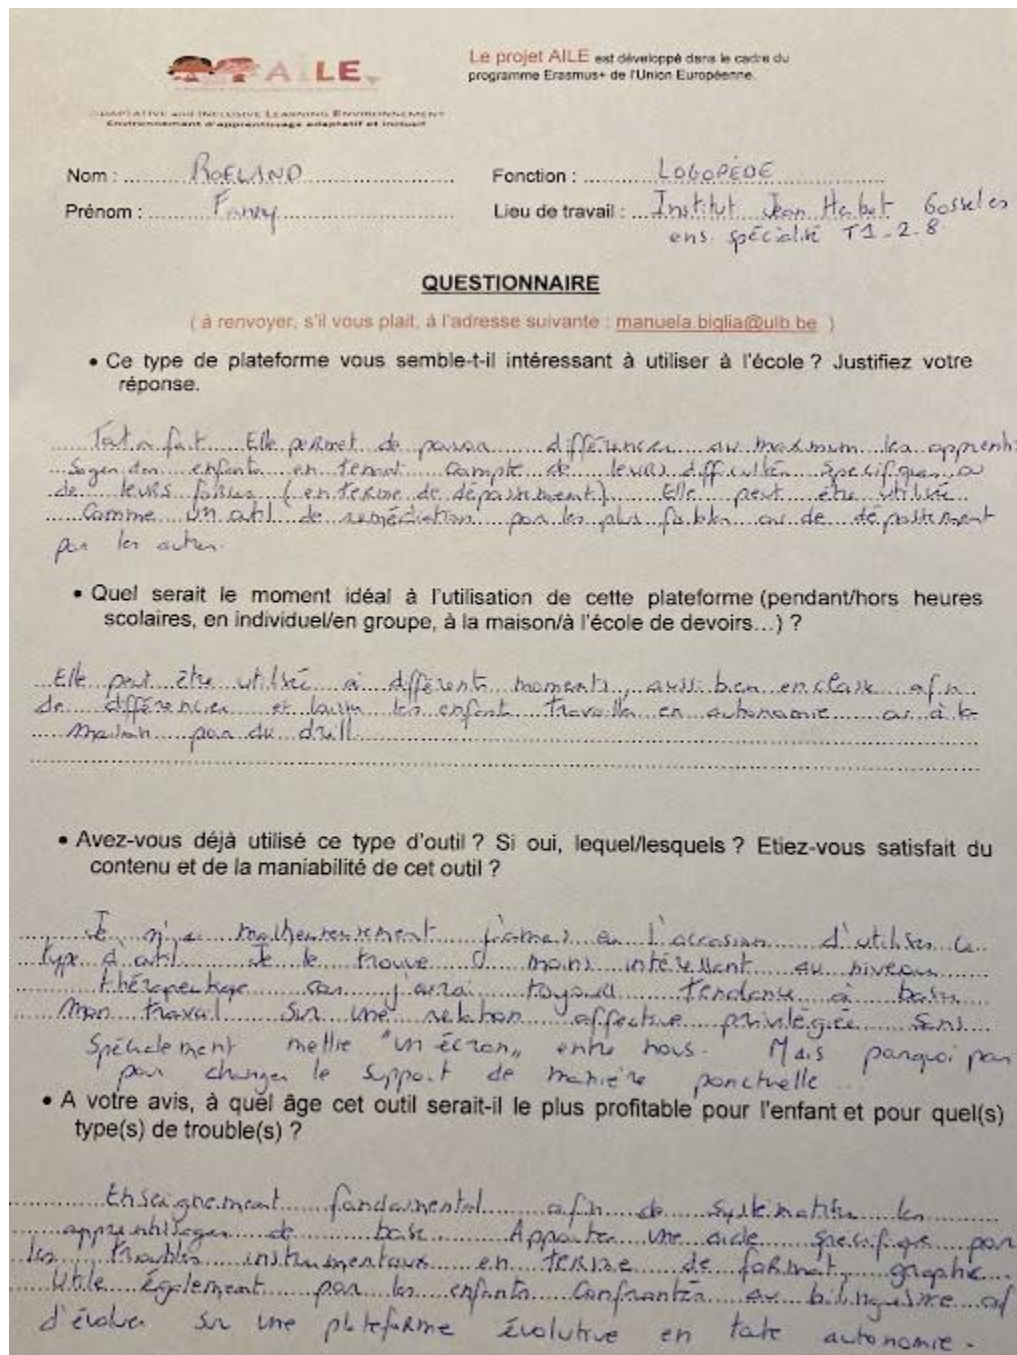 AILE
Le projet AILE est développé dans le cadre du
programme Erasmus+ de l'Union Européenne.
ADAPTATIVE and INCLUSIVE LEARNING ENVIRONNEMENT
Environnement d'apprentissage adaptatif et inclusif
Nom : ROELAND
Fonction : LOGOPÈDE
Prénom : Fanny
Lieu de travail : Institut Jean Gosselies
ens. spécialisé T1-2-8
QUESTIONNAIRE
( à renvoyer, s'il vous plait, à l'adresse suivante : manuela.biglia@ulb.be )
• Ce type de plateforme vous semble-t-il intéressant à utiliser à l'école ? Justifiez votre
réponse.
Tout à fait. Elle permet de pouvoir différencier au maximum les apprentis
sages des enfants en tenant compte de leurs difficultés spécifiques ou
de leurs forces (en terme de dépassement). Elle peut être utilisée
comme un outil de remédiation pour les plus faibles ou de dépassement
pour les autres.
• Quel serait le moment idéal à l'utilisation de cette plateforme (pendant/hors heures
scolaires, en individuel/en groupe, à la maison/à l'école de devoirs...) ?
Elle peut être utilisée à différents moments, aussi bien en classe afin
de différencier et laisser les enfants travailler en autonomie ou à la
maison pour du drill.
• Avez-vous déjà utilisé ce type d'outil ? Si oui, lequel/lesquels ? Etiez-vous satisfait du
contenu et de la maniabilité de cet outil ?
Je n'ai malheureusement jamais eu l'occasion d'utiliser ce
type d'outil. Je le trouve moins intéressant au niveau
thérapeutique car j'aurai toujours tendance à baser
mon travail sur une relation affective privilégiée sans
spécialement mettre "un écran" entre nous. Mais pourquoi pas
pour changer le support de manière ponctuelle...
• A votre avis, à quel âge cet outil serait-il le plus profitable pour l'enfant et pour quel(s)
type(s) de trouble(s) ?
Enseignement fondamental afin de systématiser les
apprentissages de base. Apporter une aide spécifique pour
les troubles instrumentaux en terme de format, graphie.
Utile également pour les enfants confrontés au bilinguisme af
d'évoluer sur une plateforme évolutive en toute autonomie.